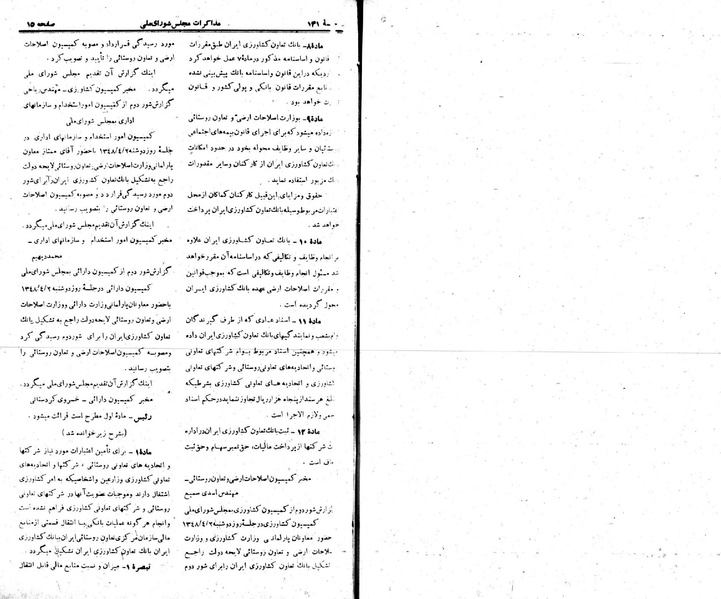 صفحه ۱۵
مذاکرات مجلس شورای ملی
۱۳۱
مادهٔ ۸ـ بانک تعاون کشاورزی ایران طبق مقررات
قانون و اساسنامه مذکور درمادهٔ ۷ عمل خواهد کرد
دیکه دراین قانون واساسنامه بانک پیش‌بینی نشده
تابع مقررات قانون بانکی و پولی کشور و قانون
خواهد بود .
مادهٔ ۹ـ بوزارت اصلاحات ارضی و تعاون روستائی
داده میشود که برای اجرای قانون بیمه‌های اجتماعی
و سایر وظایف محوله بخود در حدود امکانات
تعاون کشاورزی ایران از کارکنان وسایر مقدورات
مزبور استفاده نماید .
حقوق و مزایای این قبیل کارکنان کماکان از محل
اعتبارات مربوط وسیله بانک تعاون کشاورزی ایران پرداخت
خواهد شد .
مادهٔ ۱۰ ـ بانک تعاون کشاورزی ایران علاوه
بر انجام وظایف و تکالیفی که دراساسنامه آن مقرر خواهد
شد مسئول انجام وظایف وتکالیفی است که بموجب قوانین
مقررات اصلاحات ارضی عهده بانک کشاورزی ایران
محول گردیده است .
مادهٔ ۱۱ ـ اسناد عادی که از طرف گیرندگان
وام شعب و نمایندگیهای بانک تعاون کشاورزی ایران داده
میشود و همچنین اسناد مربوط بوام شرکتهای تعاونی
روستائی واتحادیه‌های تعاونی روستائی و شرکتهای تعاونی
کشاورزی و اتحادیه های تعاونی کشاورزی بشرطیکه
مبلغ هرسند از پنجاه هزار ریال تجاوز ننماید در حکم اسناد
رسمی ولازم الاجرا است .
مادهٔ ۱۲ ـ ثبت بانک تعاون کشاورزی ایران دراداره
ثبت شرکتها از پرداخت مالیات، حق تمبر سهام وحق ثبت
معاف است .
مخبر کمیسیون اصلاحات ارضی و تعاون روستائی ـ
مهندس اسدی سمیع
گزارش شور دوم از کمیسیون کشاورزی بمجلس شورای ملی
کمیسیون کشاورزی درجلسهٔ روز دوشنبه ۱۳۴۸/۴/۲ با
حضور معاونان پارلمانی وزارت کشاورزی و وزارت
اصلاحات ارضی و تعاون روستائی لایحه دولت راجع
به تشکیل بانک تعاون کشاورزی ایران را برای شور دوم
مورد رسیدگی قرارداد و مصوبه کمیسیون اصلاحات
ارضی و تعاون روستائی را تأیید و تصویب کرد .
اینک گزارش آن تقدیم مجلس شورای ملی
میگردد . مخبر کمیسیون کشاورزی ـ مهندس ریاحی
گزارش شور دوم از کمیسیون امور استخدام و سازمانهای
اداری بمجلس شورای ملی
کمیسیون امور استخدام و سازمانهای اداری در
جلسهٔ روز دوشنبه ۱۳۴۸/۴/۲ باحضور آقای ممتاز معاون
پارلمانی وزارت اصلاحات ارضی و تعاون روستائی لایحه دولت
راجع به تشکیل بانک تعاون کشاورزی ایران را برای شور
دوم مورد رسیدگی قرارداد و مصوبه کمیسیون اصلاحات
ارضی و تعاون روستائی را بتصویب رسانید .
اینک گزارش آن تقدیم مجلس شورای ملی میگردد .
مخبر کمیسیون امور استخدام و سازمانهای اداری ـ
محمد دیهیم
گزارش شور دوم از کمیسیون دارائی بمجلس شورای ملی
کمیسیون دارائی درجلسهٔ روز دوشنبه ۱۳۴۸/۴/۲
باحضور معاونان پارلمانی وزارت دارائی و وزارت اصلاحات
ارضی و تعاون روستائی لایحه دولت راجع به تشکیل بانک
تعاون کشاورزی ایران را برای شور دوم رسیدگی کرد
ومصوبه کمیسیون اصلاحات ارضی و تعاون روستائی را
بتصویب رسانید .
اینک گزارش آن تقدیم مجلس شورای ملی میگردد .
مخبر کمیسیون دارائی ـ خسروی کردستانی
رئیس ـ مادهٔ اول مطرح است قرائت میشود .
(بشرح زیر خوانده شد)
مادهٔ ۱ـ برای تأمین اعتبارات مورد نیاز شرکتها
و اتحادیه های تعاونی روستائی ، شرکتها و اتحادیه‌های
تعاونی کشاورزی وزارعین واشخاصیکه به امر کشاورزی
اشتغال دارند وموجبات عضویت آنها در شرکتهای تعاونی
روستائی و شرکتهای تعاونی کشاورزی فراهم نشده است
وانجام هر گونه عملیات بانکی با انتقال قسمتی از منابع
مالی سازمان مرکزی تعاون روستائی ایران بانک کشاورزی
ایران بانک تعاون کشاورزی ایران تشکیل میگردد .
تبصرهٔ ۱ـ میزان و نسبت منابع مالی قابل انتقال